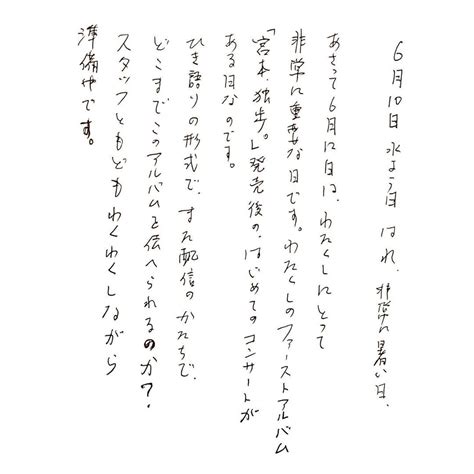 6月10日 水よう日 はれ、非常に暑い日、
あさって6月12日は、わたくしにとって
非常に重要な日です。わたくしのファーストアルバム
「宮本、独歩。」発売後の、はじめてのコンサートが
ある日なのです。
ひき語りの形式で、また配信のかたちで、
どこまでこのアルバムを伝へられるのか?
スタッフともどもわくわくしながら
準備中です。